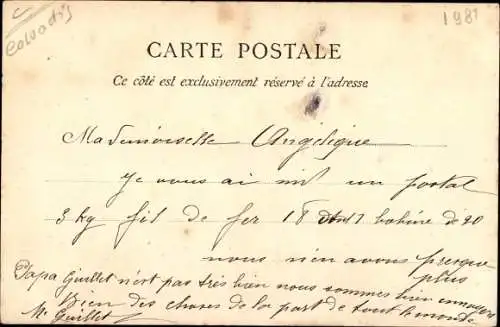 C
Calvados
1981
CARTE POSTALE
Ce côté est exclusivement réservé à l'adresse
Mademoiselle Angèlique
Je vous ai mit un postal
3 kg fil de fer 18 et 1 bobine de 20
nous n'en avons presque
plus
Papa Guillet n'est pas très bien nous sommes bien ennuyés
Bien des choses de la part de tout le monde
M. Guillet